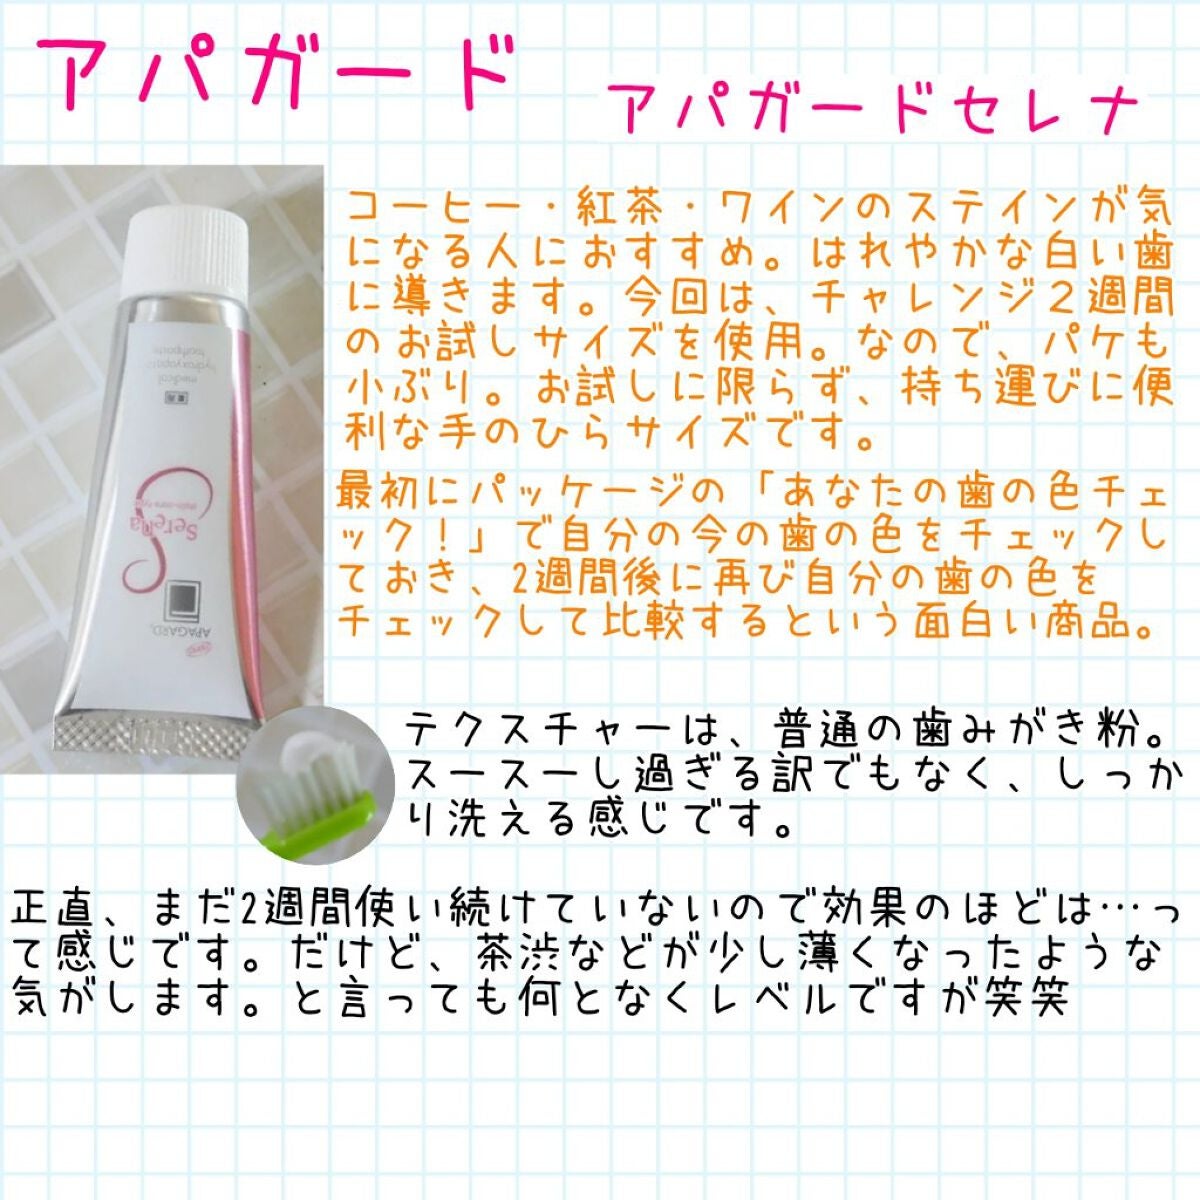 アパガード
アパガードセレナ
コーヒー・紅茶・ワインのステインが気
になる人におすすめ。はれやかな白い歯
に導きます。今回は、チャレンジ2週間
のお試しサイズを使用。なので、パケも
小ぶり。お試しに限らず、持ち運びに便
利な手のひらサイズです。
最初にパッケージの「あなたの歯の色チェ
ック!」で自分の今の歯の色をチェックし
ておき、2週間後に再び自分の歯の色を
チェックして比較するという面白い商品。
テクスチャーは、普通の歯みがき粉。
スースーし過ぎる訳でもなく、しっか
り洗える感じです。
正直、まだ2週間使い続けていないので効果のほどは…っ
て感じです。だけど、茶渋などが少し薄くなったような
気がします。と言っても何となくレベルですが笑笑
APAGARD
Serena
medical
toothpaste